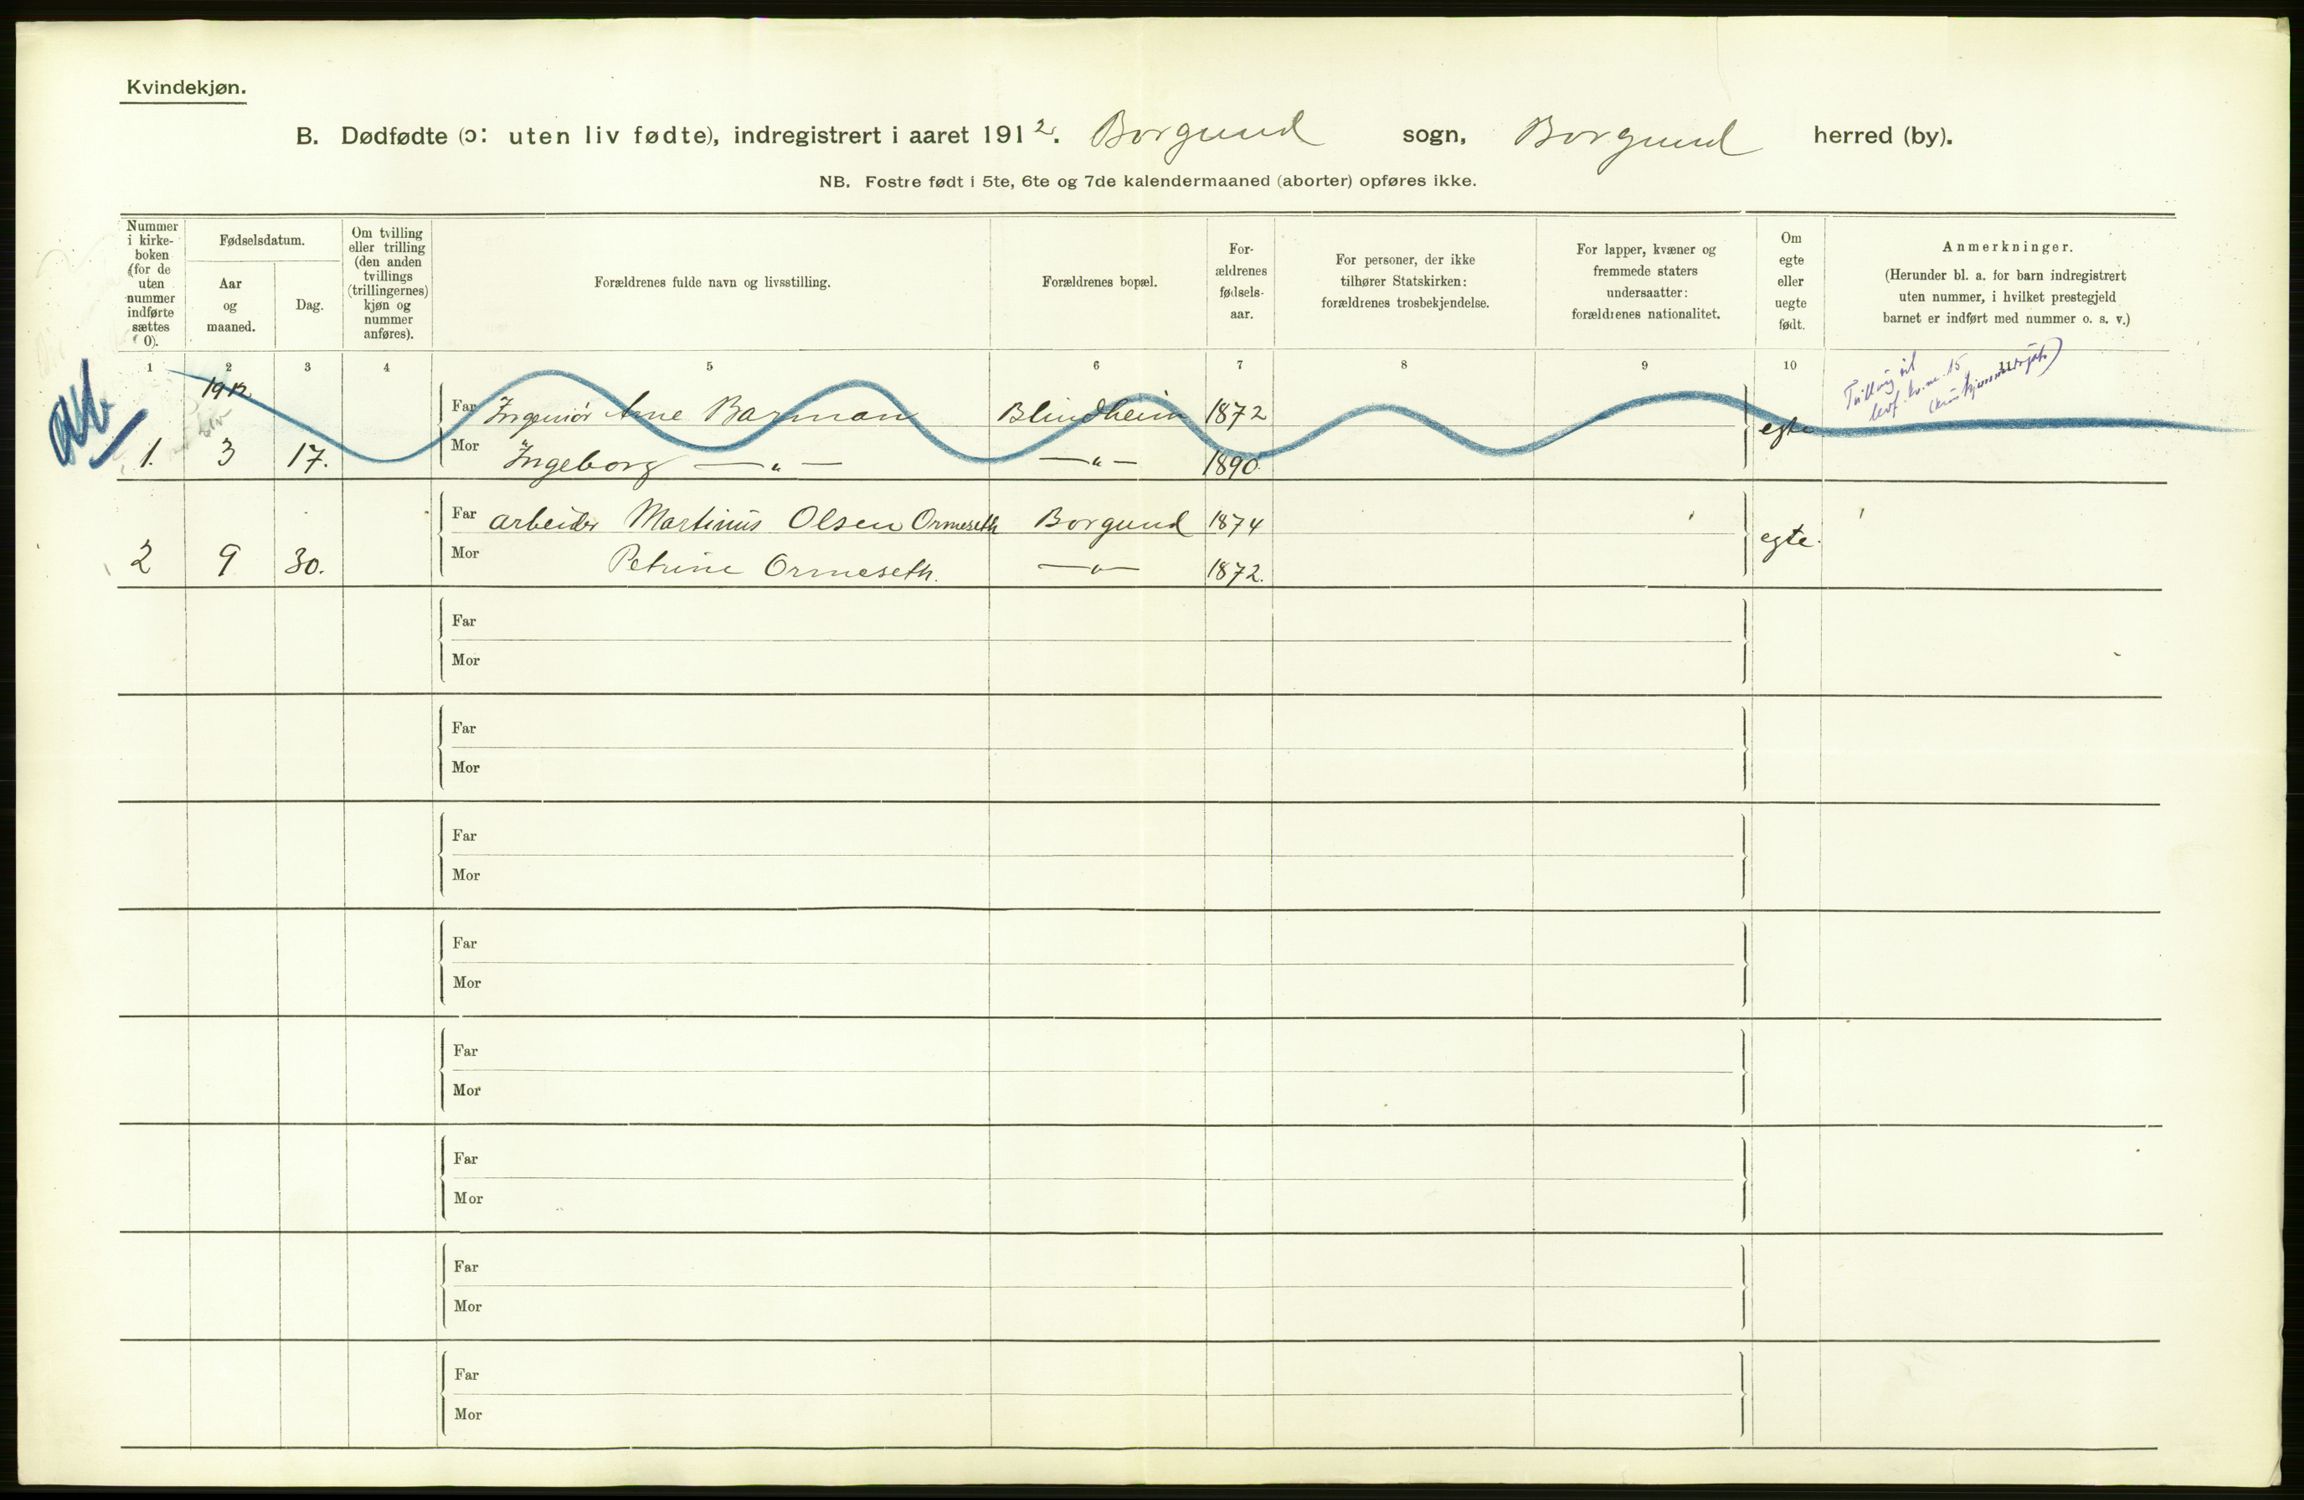 Kvindekjøn.
B. Dødfødte (ɔ: uten liv fødte), indregistrert i aaret 1912. Borgund sogn, Borgund herred (by).
NB. Fostre født i 5te, 6te og 7de kalendermaaned (aborter) opføres ikke.
Nummer i kirke-boken (for de uten nummer indførte sættes 0).
Fødselsdatum.
Aar og maaned.
Dag.
Om tvilling eller trilling (den anden tvillings (trillingernes) kjøn og nummer anføres).
Forældrenes fulde navn og livsstilling.
Forældrenes bopæl.
For-ældrenes fødsels-aar.
For personer, der ikke tilhører Statskirken: forældrenes trosbekjendelse.
For lapper, kvæner og fremmede staters undersaatter: forældrenes nationalitet.
Om egte eller uegte født.
Anmerkninger.
(Herunder bl. a. for barn indregistrert uten nummer, i hvilket prestegjeld barnet er indført med nummer o. s. v.)
1 2 3 4 5 6 7 8 9 10 11
Tvilling til
levf. kv. nr. 15
1912
Far Ingeniør Arne Barman Blindheim 1872
egte
Mor Ingeborg —„— —„— 1890
1. 3 17.
Far arbeider Martinus Olsen Ormeseth Borgund 1874
egte.
Mor Petrine Ormeseth. —„— 1872.
2 9 30.
Far
Mor
Far
Mor
Far
Mor
Far
Mor
Far
Mor
Far
Mor
Far
Mor
Far
Mor